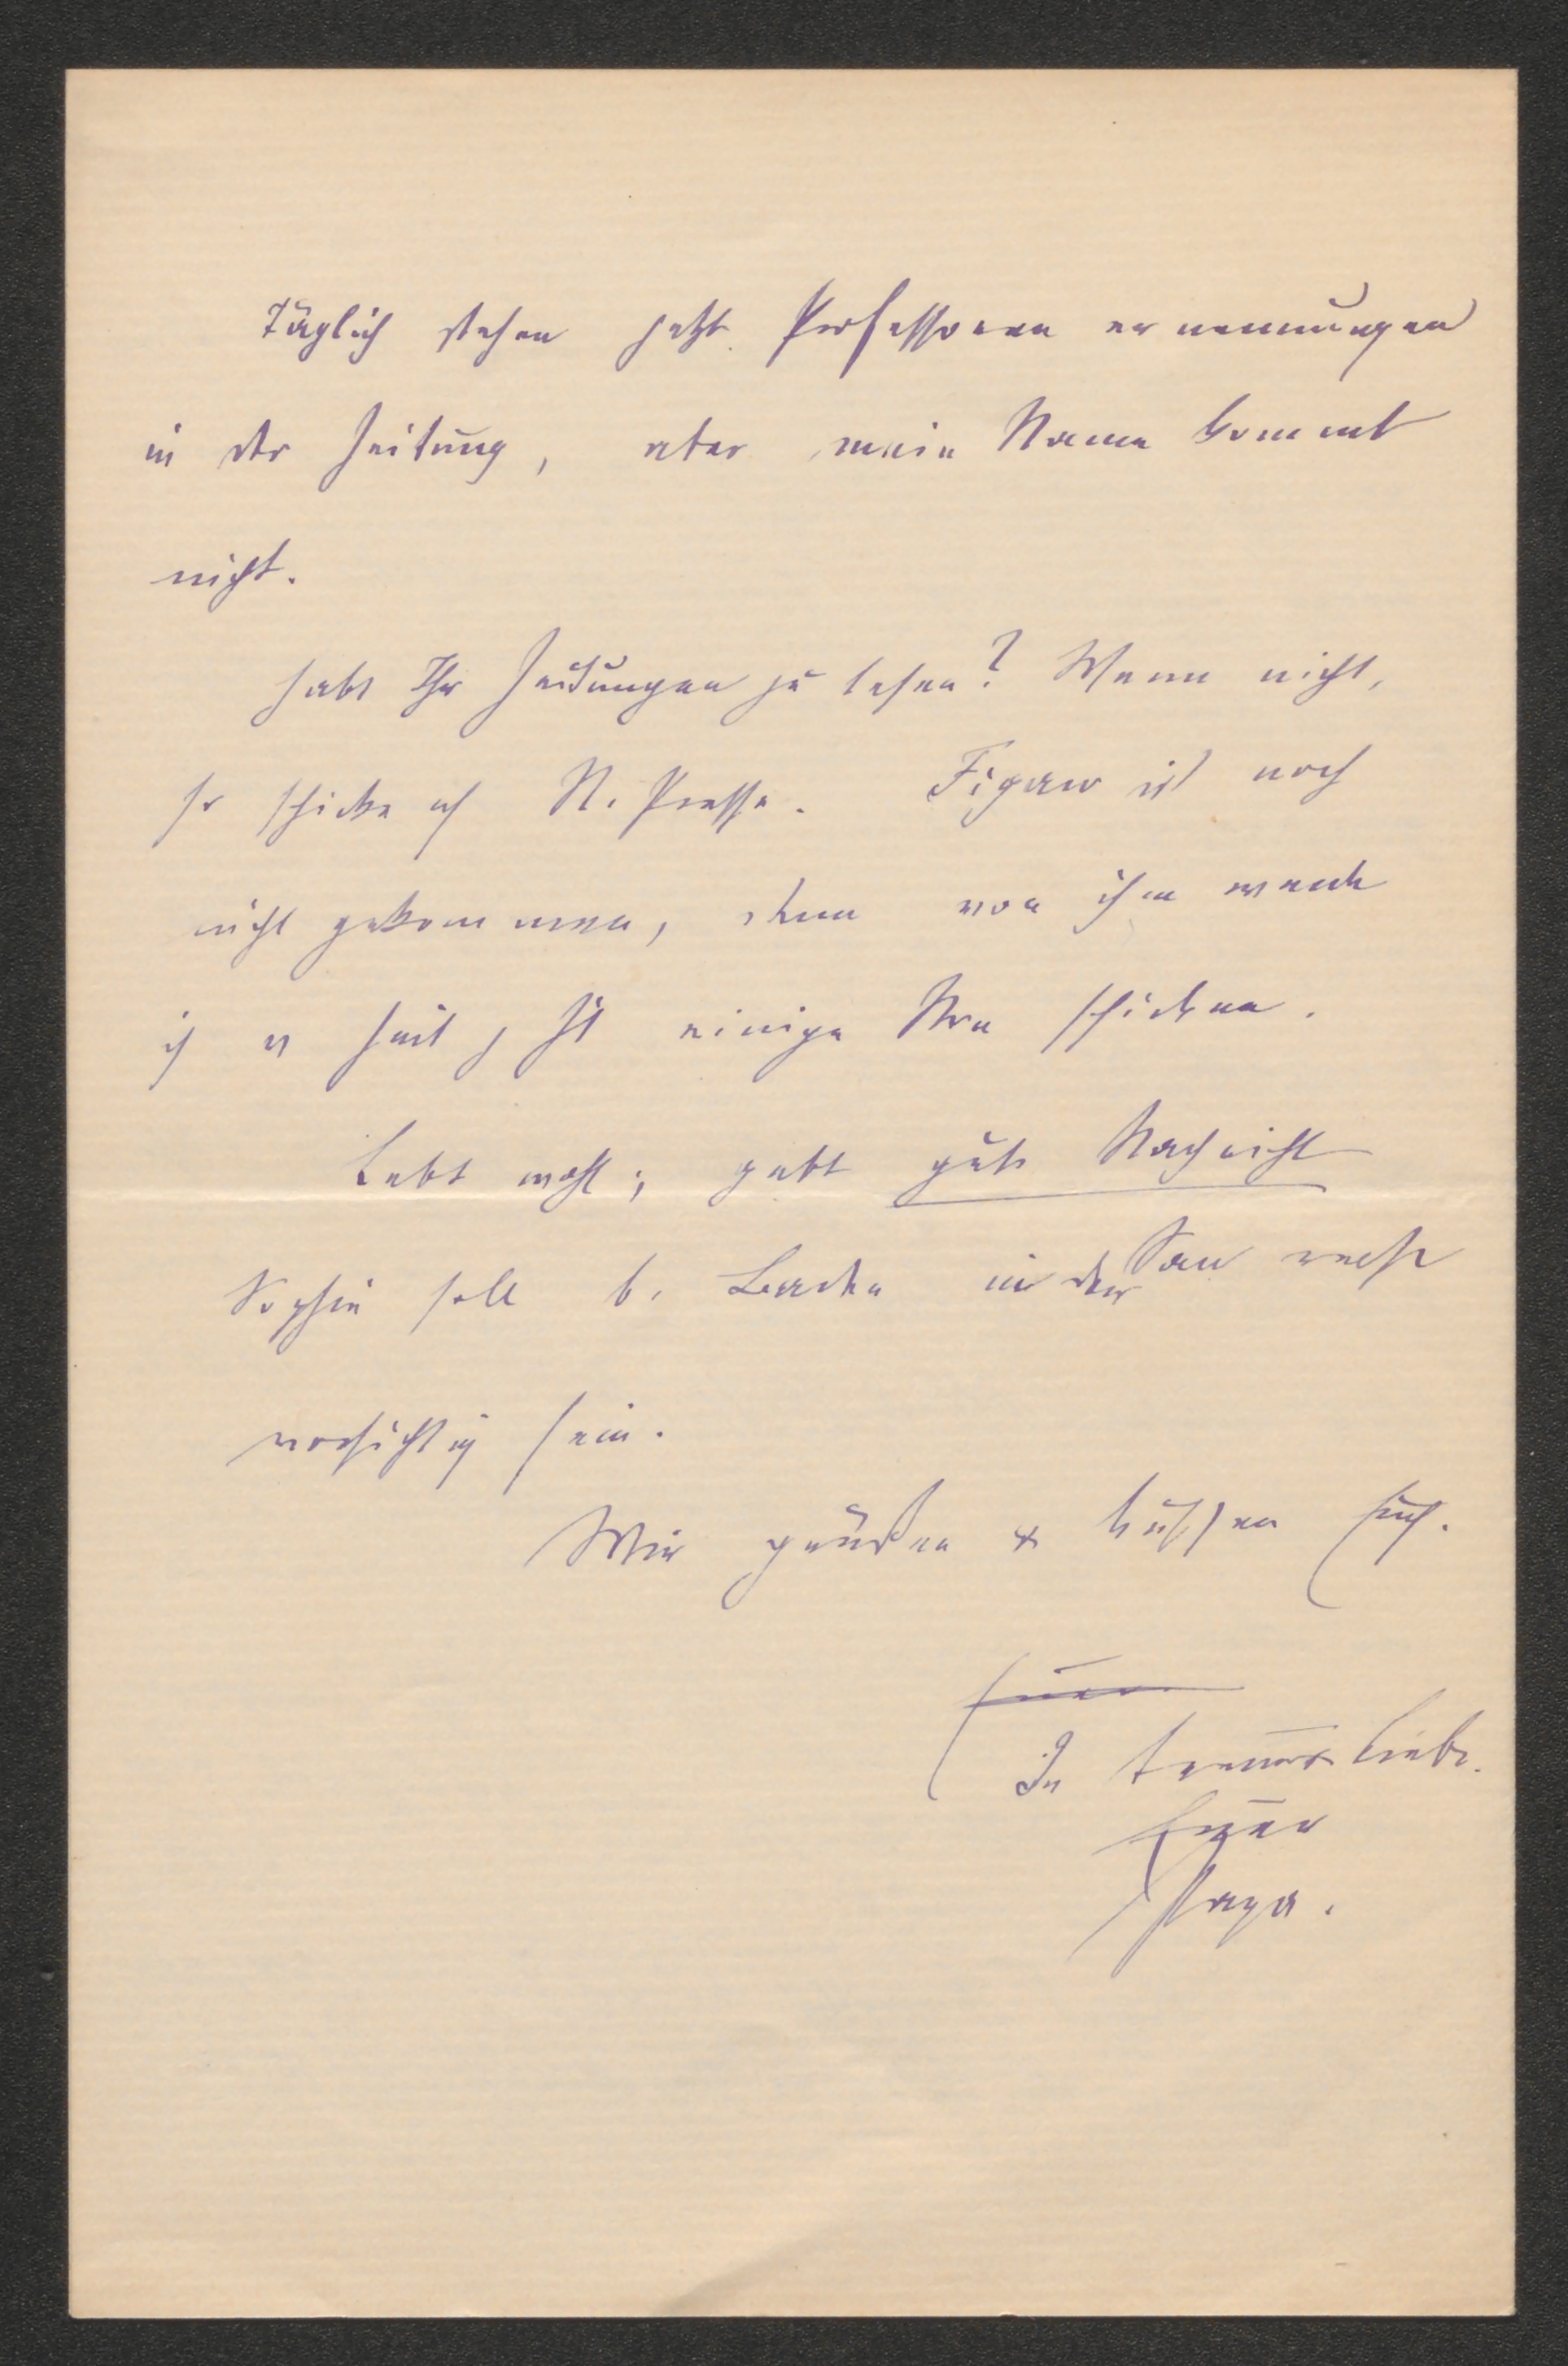 Täglich stehen jetzt Professoren ernennungen
in der Zeitung, aber mein Name kommt
nicht.
Habt Ihr Zeitungen zu lesen? Wenn nicht,
so schicke ich N. Presse. Figaro ist noch
nicht gekommen, denn von ihm werde
ich v Zeit z Zt einige Nrn schicken.
Lebt wohl; gebt gute Nachricht
Sophie soll b. Baden in der San recht
vorsichtig sein.
Wir grüßen & küssen Euch.
Euer
In treuer Liebe.
Euer
Papa.